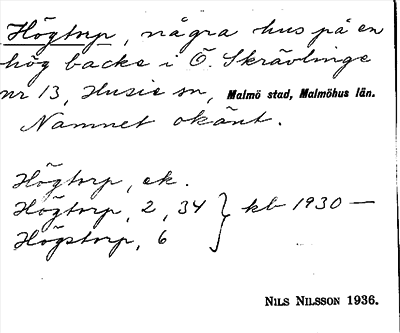 Högtorp, några hus på en
hög backe i Ö. Skrävlinge
nr 13, Husie sn, Malmö stad, Malmöhus län.
Namnet okänt.
Högtorp, ek.
Högtorp, 2, 34 } kb 1930 —
Högstorp, 6
NILS NILSSON 1936.